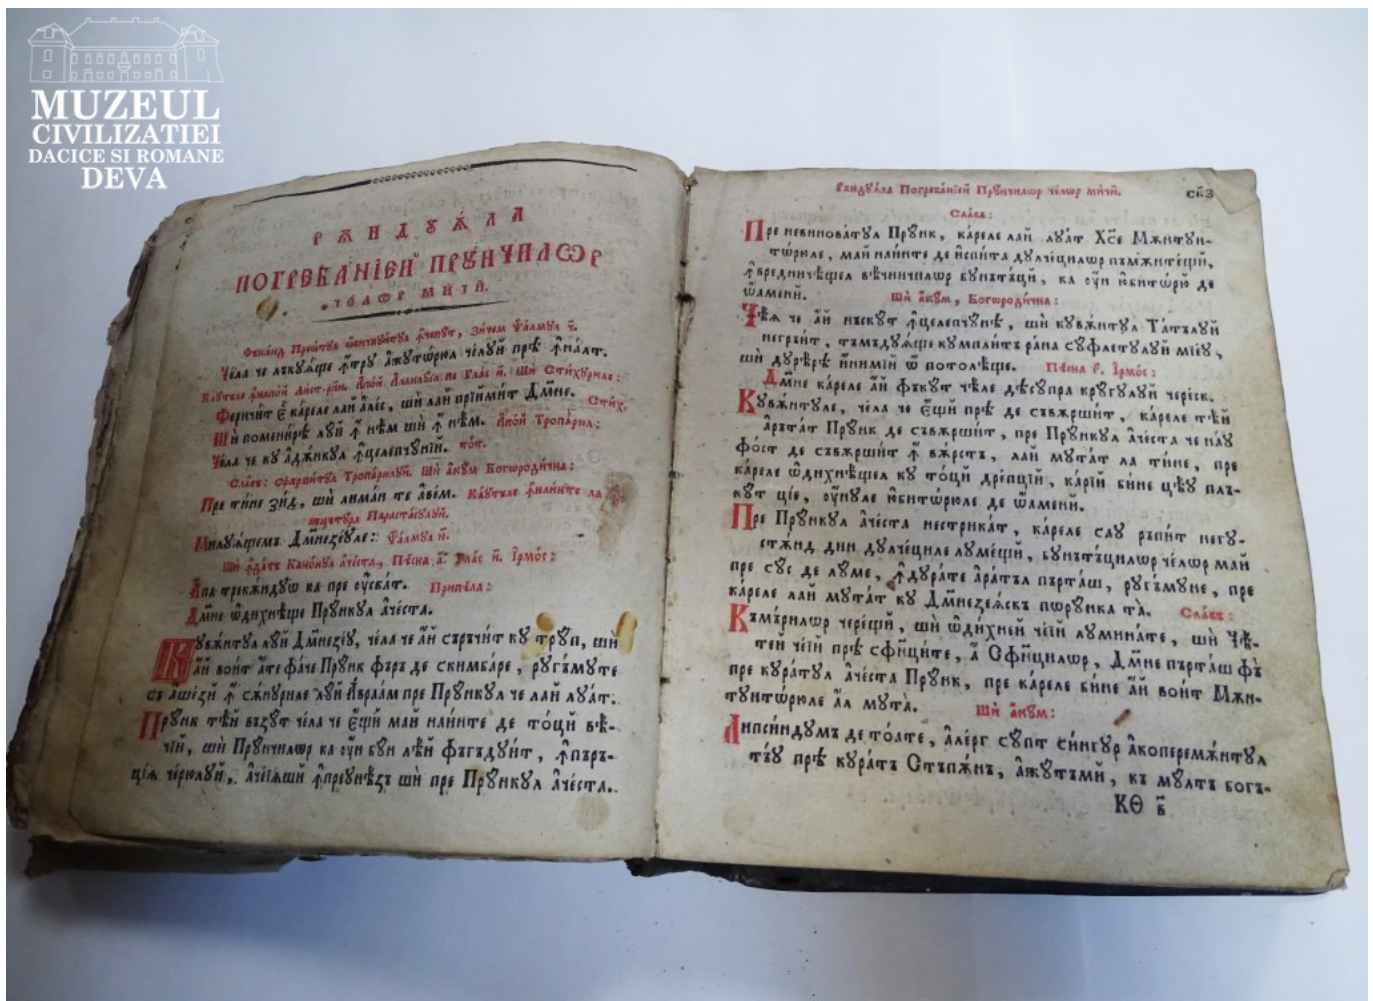 MUZEUL
CIVILIZATIEI
DACICE SI ROMANE
DEVA
РѪНДУѦЛА
ПОГРЕБА́НІЕЙ ПРУ́НЧИЛѠР
ЧЕ́ЛѠР МИ́ЧЙ.
Фъкѫнд Преѡ́тул ѡ҆бичнꙋи́тул ꙟ҆чепꙋ́т, зи́чем Ѱа́лмул
Че́ла че лъкꙋѧ́ще ꙟ҆́трꙋ а҆жꙋтѡ́рюл че́лꙋй прѣ ꙟ҆на́лт.
Ферічи́т є҆́ ка́реле лай а҆лéс, шѝ лай прїими́т Дм҃не. Сти́х,
Шѝ помени́рѣ лꙋй ꙟ҆ нѣ́м шѝ ꙟ҆ нѣ́м. Апо́й Тропа́рюл:
Че́ла че кꙋ а҆дѫ́нкꙋл ꙟ҆целепчꙋ́нїй. то́т.
Сла́въ: сфѫрши́тꙋл Тропа́рюлꙋй. Шѝ а҆кꙋ́м Богоро́дична:
Пре ти́не зи́д, шѝ лима́н те а҆ве́м. Ка́ꙋтъле ꙟ҆наи́нте ла
Параста́сꙋлꙋй.
Милꙋѧ́щемъ Дм҃незе́ꙋле: Ѱа́лмꙋл н҃.
Шѝ ꙟ҆да́тъ Кано́нꙋл а҆че́ста, Пѣ́сна а҃. Гла́с и҃. І҆рмо́с:
А́па трекѫ́ндꙋѡ ка пре ᲂу҆ска́т. Припѣ́ла:
Дм҃не ѡ҆дихнѣ́ще Прꙋ́нкꙋл а҆че́ста.
Кꙋвѫ́нтꙋл лꙋй Дм҃незе́ꙋ, че́ла че а҆й съръчи́т кꙋ трꙋ́п, шѝ
а҆й вои́т а҆́те фа́че Прꙋ́нк фъръ де скимба́ре, рꙋгъ́мꙋте
съ а҆ше́зй ꙟ҆ сѫ́нꙋриле лꙋй А҆враа́м пре Прꙋ́нкꙋл че лай лꙋа́т.
Прꙋ́нк те́й възꙋ́т че́ла че є҆́щй май наи́нте де то́цй вѣ́-
чїй, шѝ Прꙋ́нчилѡр ка ᲂу҆́н бꙋ́н лѣ́й фъгъдꙋи́т, ꙟ҆пъръ-
ці́ѧ че́рюлꙋй, а҆чеі́ѧшй ꙟ҆преꙋнѣ́зъ шѝ пре Прꙋ́нкꙋл а҆че́ста.
Рѫндꙋѧ́ла Погреба́нїей Прꙋ́нчилѡр че́лѡр ми́чй.
ск҃з
Сла́въ:
Пре невинова́тꙋл Прꙋ́нк, ка́реле лай лꙋа́т Хс҃е Мѫнтꙋи-
тѡ́рюле, май наи́нте де и҆спи́та дꙋлче́цилѡр пъмѫнте́щй,
ꙟ҆вредничѣ́щел вѣ́чничилѡр бꙋнътъ́цй, ка ᲂу҆́н ю҆битѡ́рю де
ѡ҆́аменй. Шѝ а҆кꙋ́м, Богоро́дична:
Че́ѧ че а҆й нъскꙋ́т ꙟ҆целепчꙋ́нѣ, шѝ кꙋвѫ́нтꙋл Та́тълꙋй
негръи́т, тъмъдꙋѧ́ще кꙋмпли́тъ ра́на сꙋ́флетꙋлꙋй мїе́ꙋ,
шѝ дꙋрѣ́рѣ и҆́нимїй ѡ҆ потолѣ́ще. Пѣ́сна г҃. І҆рмо́с:
Дм҃не ка́реле а҆й фъкꙋ́т че́ле де́сꙋпра крꙋ́гꙋлꙋй чере́ск.
Кꙋвѫ́нтꙋле, че́ла че є҆́щй прѣ де съвѫрши́т, ка́реле те́й
а҆ръта́т Прꙋ́нк де съвѫрши́т, пре Прꙋ́нкꙋл а҆че́ста че наꙋ
фо́ст де съвѫрши́т ꙟ҆ вѫ́рстъ, лай мꙋта́т ла ти́не, пре
ка́реле ѡ҆дихнѣ́щел кꙋ то́цй дре́пцїй, ка́рїй би́не цѣꙋ плъ-
кꙋ́т цїе, ᲂу҆́нꙋле ю҆битѡ́рюле де ѡ҆́аменй.
Пре Прꙋ́нкꙋл а҆че́ста нестрика́т, ка́реле саꙋ ръпи́т негꙋ-
стѫ́нд дин дꙋлче́циле лꙋме́щй, бꙋнътъ́цилѡр че́лѡр май
пре сꙋс де лꙋ́ме, ꙟ҆дꙋра́те а҆ра́тъл пърта́ш, рꙋгъ́мꙋне, пре
ка́реле лай мꙋта́т кꙋ Дм҃незеѧ́скъ пѡрꙋ́нка та̀. Сла́въ:
Къмъ́рилѡр чере́щй, шѝ ѡ҆ди́хней че́їй лꙋмина́те, шѝ Че́-
тей че́їй прѣ сфи́нците, а҆ Сфи́нцилѡр, Дм҃не пърта́ш фъ̀
пре кꙋра́тꙋл а҆че́ста Прꙋ́нк, пре ка́реле би́не а҆й вои́т Мѫн-
тꙋитѡ́рюле а҆́л мꙋта̀.
Шѝ а҆кꙋ́м:
Липси́ндꙋмъ де то́ате, а҆ле́рг сꙋпт си́нгꙋр а҆коперемѫ́нтꙋл
тъ́ꙋ прѣ кꙋра́тъ Стъпѫ́нъ, а҆жꙋ́тъмй, къ мꙋ́лтъ богъ-
КѲ в҃